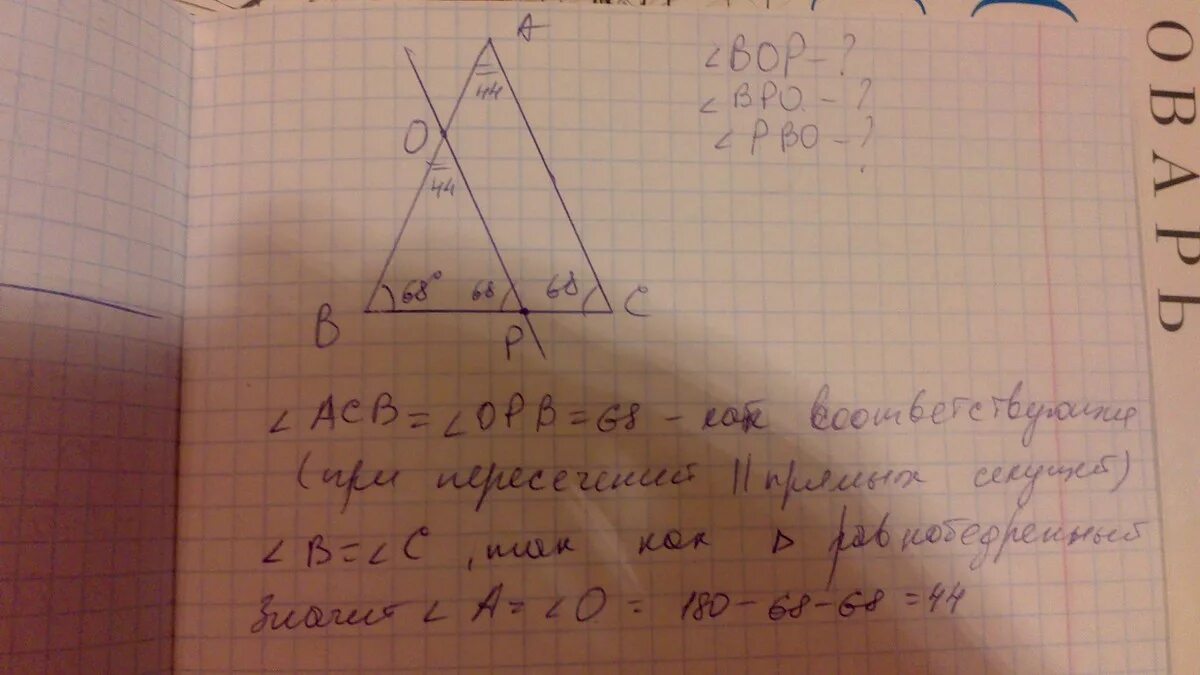 A
44
O
44
68°
68
68
B
P
C
∠BOP - ?
∠BPO - ?
∠PBO - ?
ОВАРЬ
∠ACB = ∠OPB = 68 - как соответствующие
(при пересечений || прямых секущей)
∠B = ∠C, так как △ равнобедренный
Значит ∠A = ∠O = 180 - 68 - 68 = 44